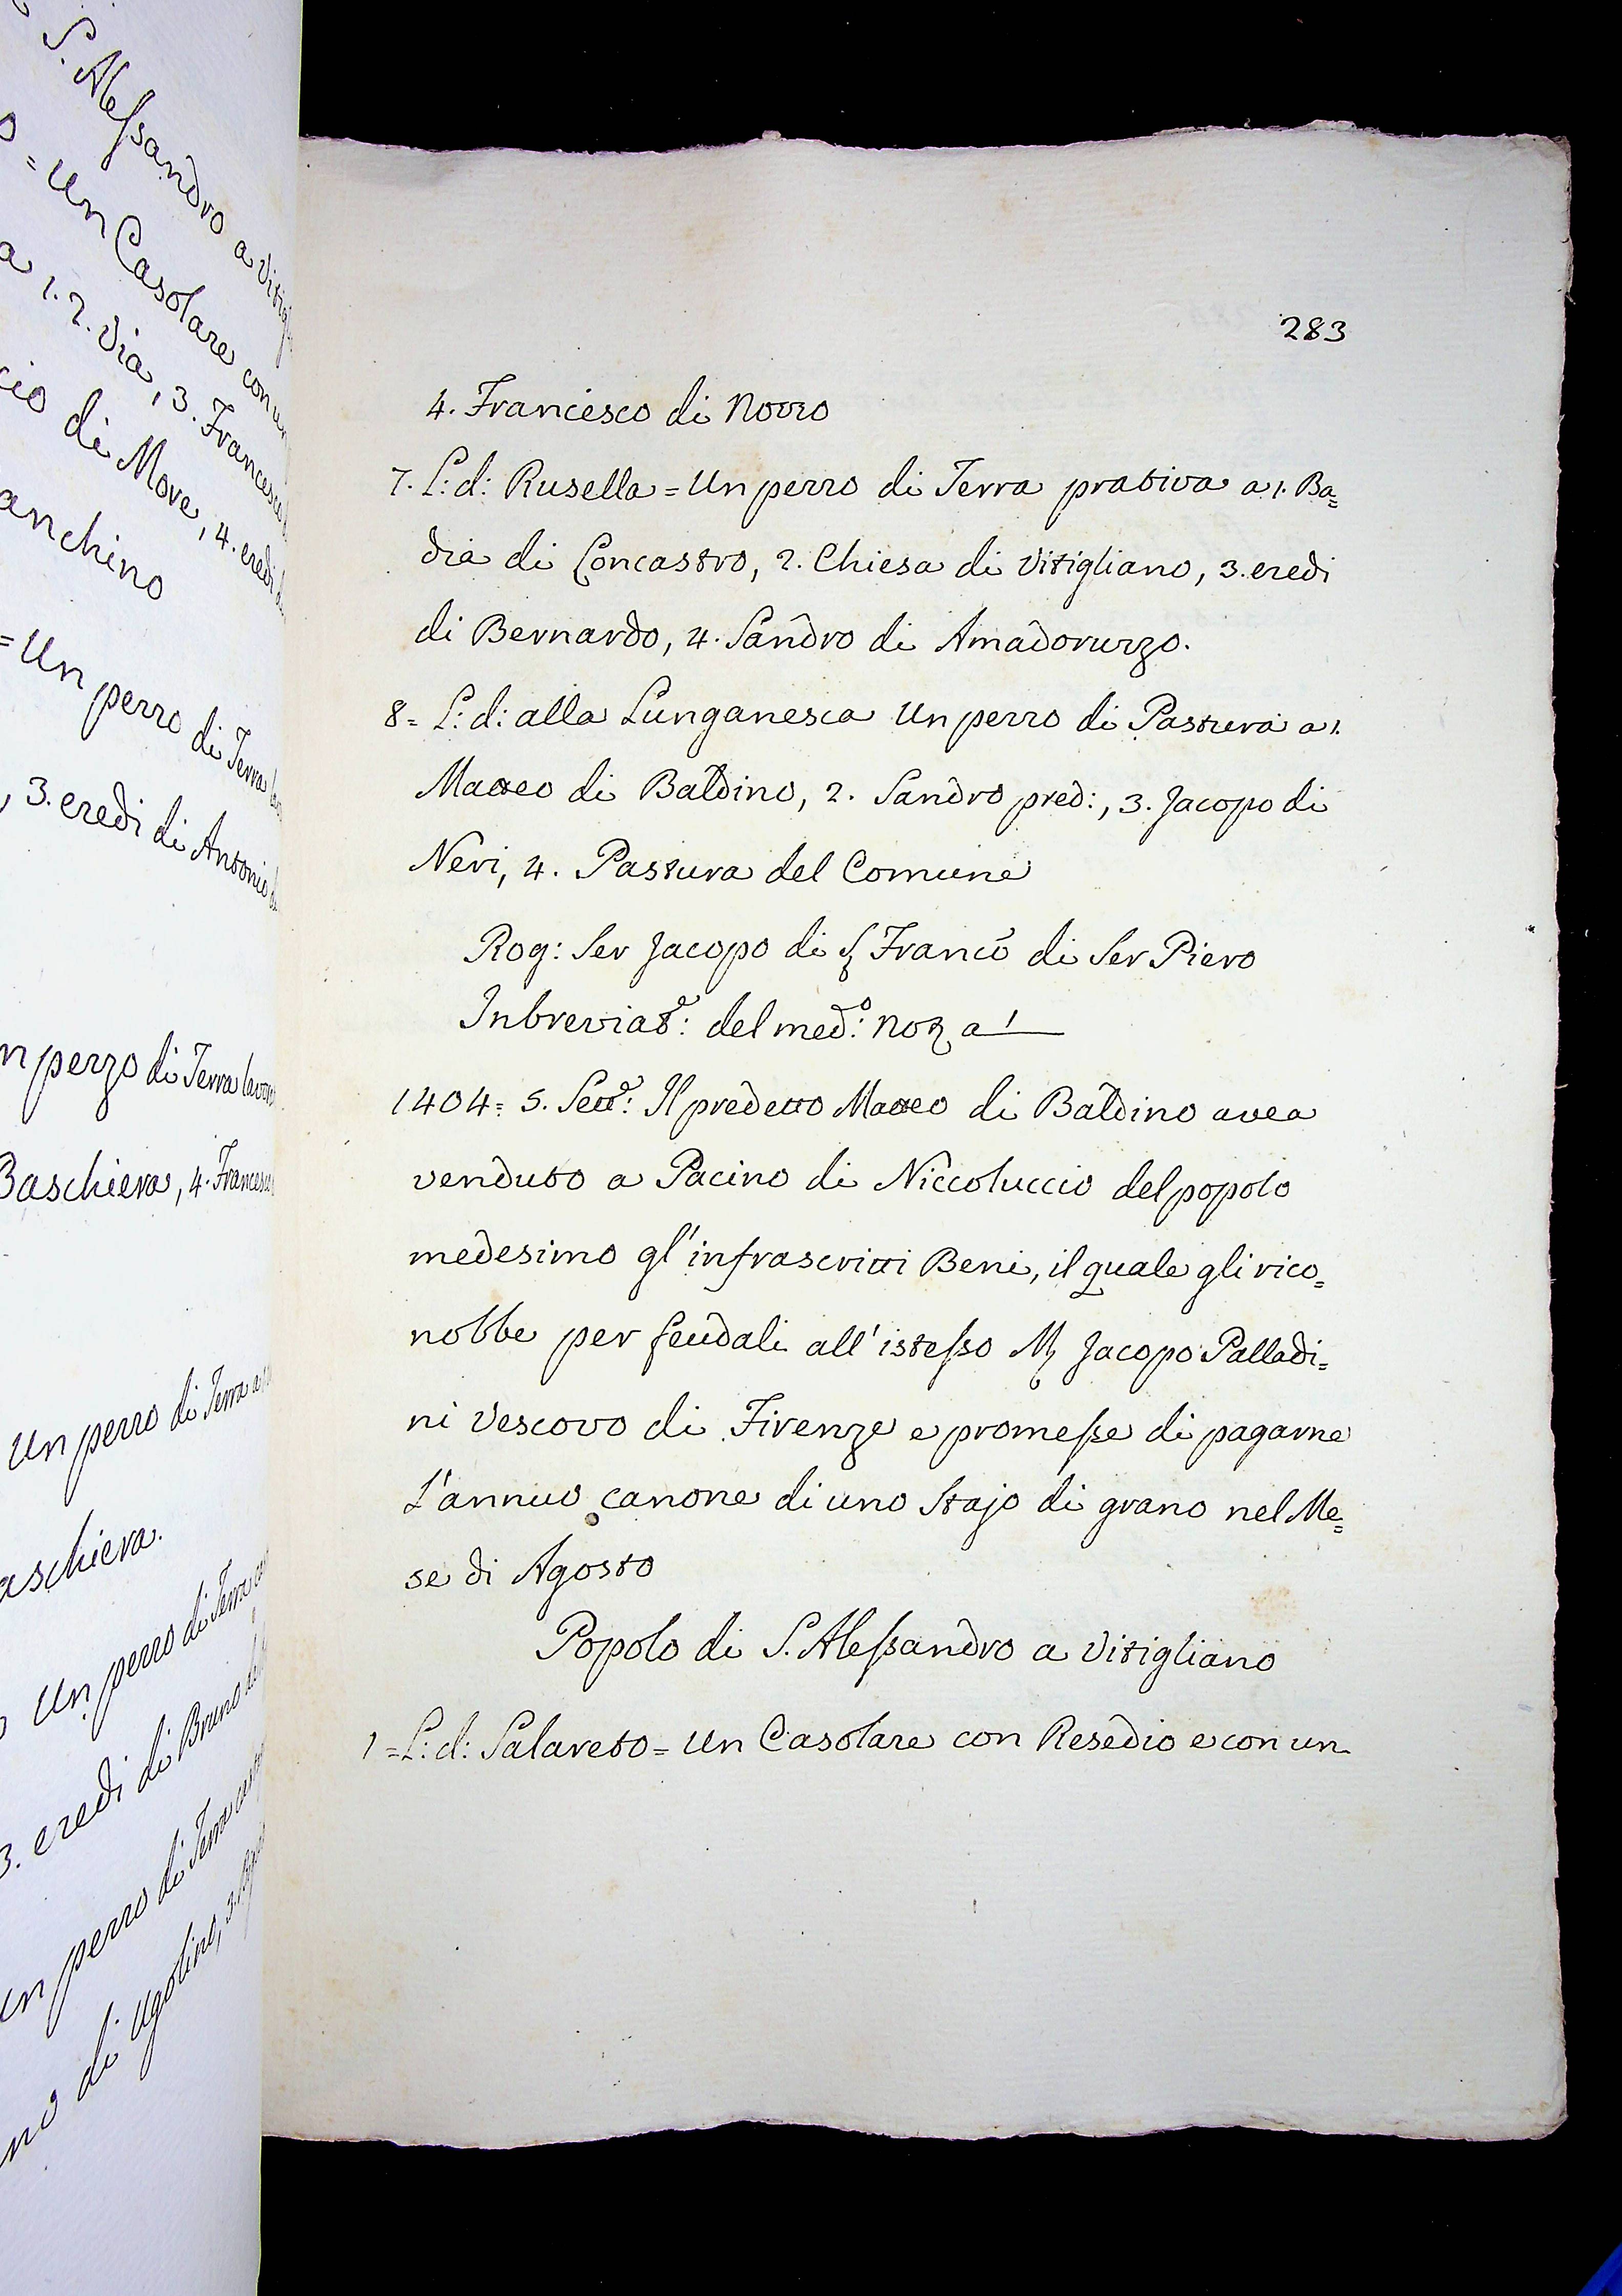 S. Alessandro a Vitigl
= Un Casolare con un
a 1. 2. Via, 3. Francesco
cio di More, 4. eredi di
anchino
= Un pezzo di Terra
, 3. eredi di Antonio di
n pezzo di Terra lavor
Baschiera, 4. Francesco
Un pezzo di Terra
aschiera.
Un pezzo di Terra
3. eredi di Bruno
un pezzo di Terra
no di Ugolino, 3.
283
4. Francesco di Nozzo
7. L: d: Rusella = Un pezzo di Terra prativa a 1. Ba=
dia di Concastro, 2. Chiesa di Vitigliano, 3. eredi
di Bernardo, 4. Sandro di Amadoruzzo.
8 = L: d: alla Lunganesca Un pezzo di Pastura a 1.
Matteo di Baldino, 2. Sandro pred:, 3. Jacopo di
Neri, 4. Pastura del Comune
Rog: Ser Jacopo di S. Franco di Ser Piero
Inbreviat.e: del med.o: Not. a 1
1404 = 5. Sett.e: Il predetto Matteo di Baldino avea
venduto a Pacino di Niccoluccio del popolo
medesimo gl'infrascritti Beni, il quale gli rico=
nobbe per feudali all'istesso M. Jacopo Palladi=
ni Vescovo di Firenze e promesse di pagarne
l'annuo canone di uno Stajo di grano nel Me=
se di Agosto
Popolo di S. Alessandro a Vitigliano
1 = L: d: Salareto = Un Casolare con Resedio e con un